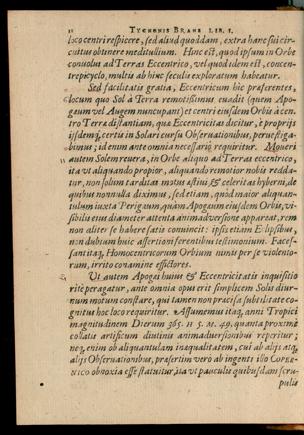 12 TYCHONIS BRAHE LIB. I.
loco centri respicere, sed aliud quoddam, extra hanc sui cir-
cuitus obtinere meditullium. Hinc est, quod ipsum in Orbe
conuolui ad Terras Eccentrico, vel quod idem est, concen-
trepicyclo, multis ab hinc seculis exploratum habeatur.
Sed facilitatis gratia, Eccentricum hic praeferentes,
locum quo Sol à Terra remotissimus euadit (quem Apo-
gaeum vel Augem nuncupant) et centri eiusdem Orbis à cen-
tro Terrae distantiam, quae Eccentricitas dicitur, è proprijs
ijsdemq́; certis in Solari cursu Observationibus, peruestiga-
bimus; id enim ante omnia necessariò requiritur. Moueri
autem Solem reuera, in Orbe aliquo ad Terras eccentrico,
ita vt aliquando propior, aliquando remotior nobis redda-
tur, non solum tarditas motus aestiui, & celeritas hyberni, de
quibus non nulla diximus, sed etiam, quòd maior aliquan-
tulum iuxta Perigaeum, quàm Apogaeum eiusdem Orbis, vi-
sibilis eius diameter attenta animadversione appareat, rem
non aliter se habere satis conuincit: ipsis etiam Eclipsibus,
non dubium huic assertioni ferentibus testimonium. Faces-
santitaq́, Homocentricorum Orbium nimis per se violento-
rum, irrito conamine effictores.
Ut autem Apogaei huius & Eccentricitatis inquisitio
ritè peragatur, ante omnia opus erit simplicem Solis diur-
num motum constare, qui tamen non praecisa subtilitate co-
gnitus hoc loco requiritur. Assumemus itaq, anni Tropici
magnitudinem Dierum 365. H 5. M. 49. quanta proximè
collatis artificum diutinis animaduersionibus reperitur;
neq, enim ob aliquantulam inaequalitatem, cui ab alijs atq,
alijs Observationibus, praesertim verò ab ingenti illo COPER-
NICO obnoxia esse statuitur, ita vt pauculis quibusdam scru-
pulis